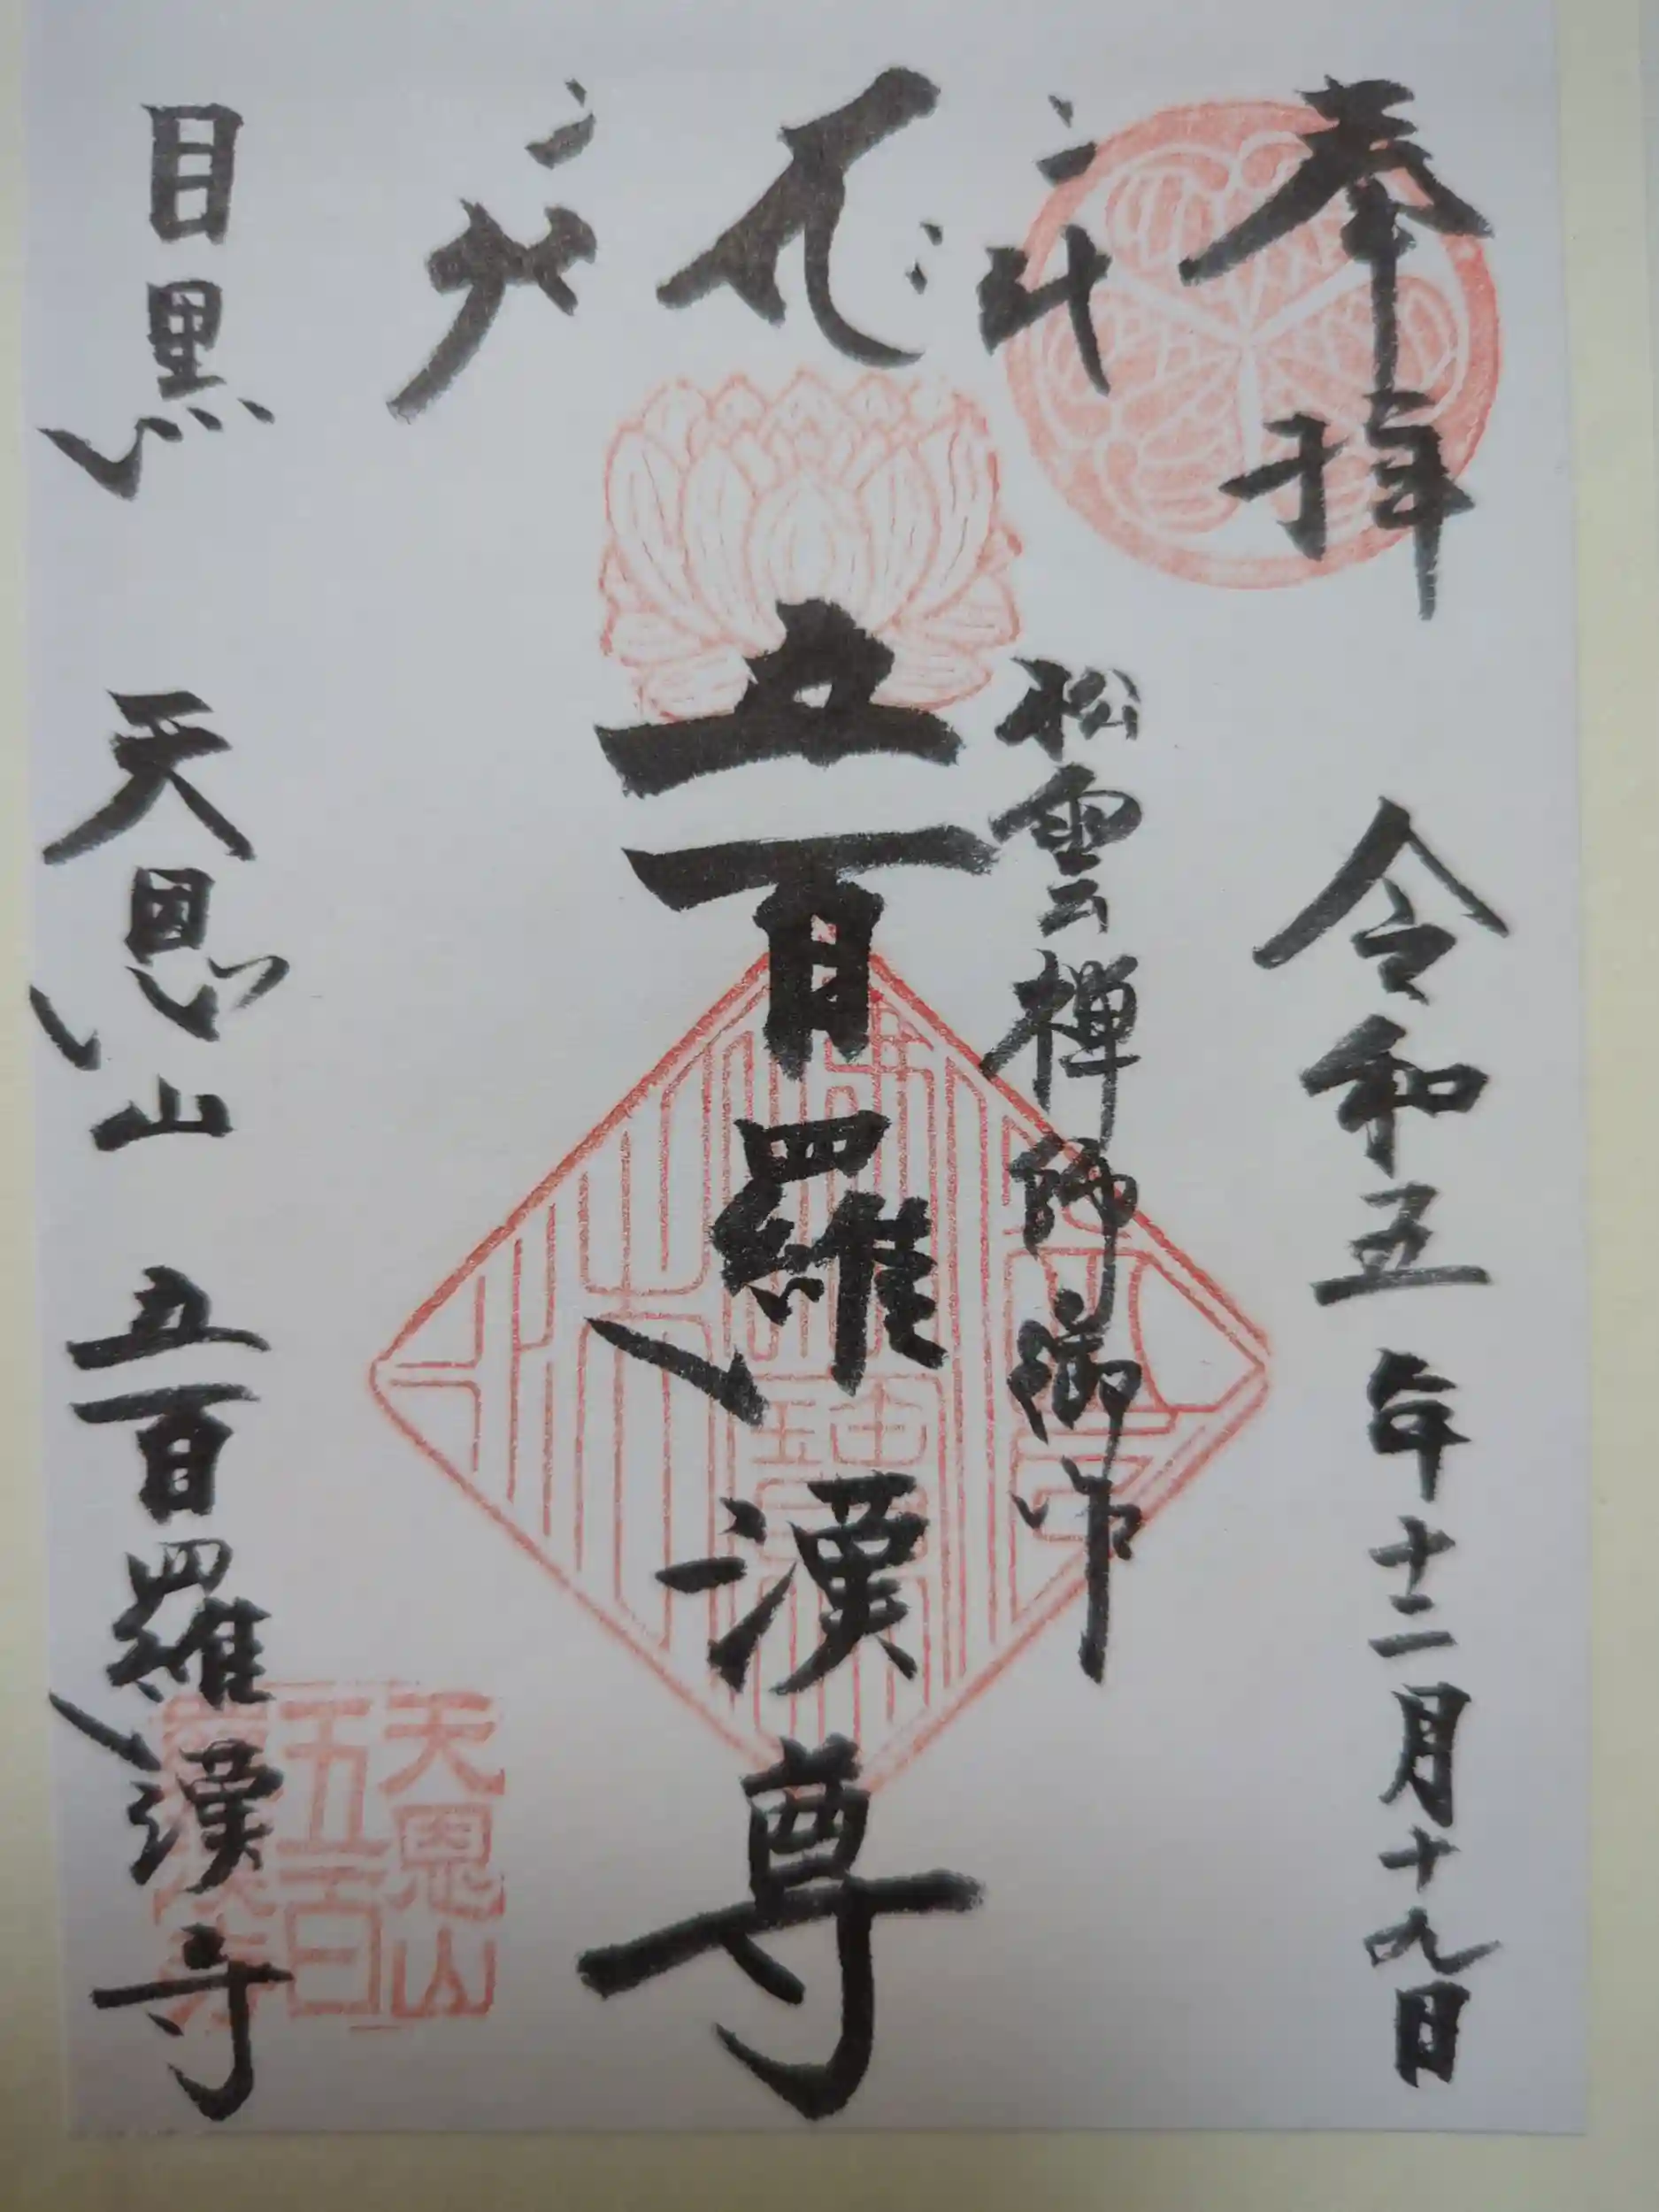 奉拝
令和五年十二月十九日
松雲禅師御作
五百羅漢尊
目黒
天恩山
五百羅漢寺
天恩山
五百
羅漢寺